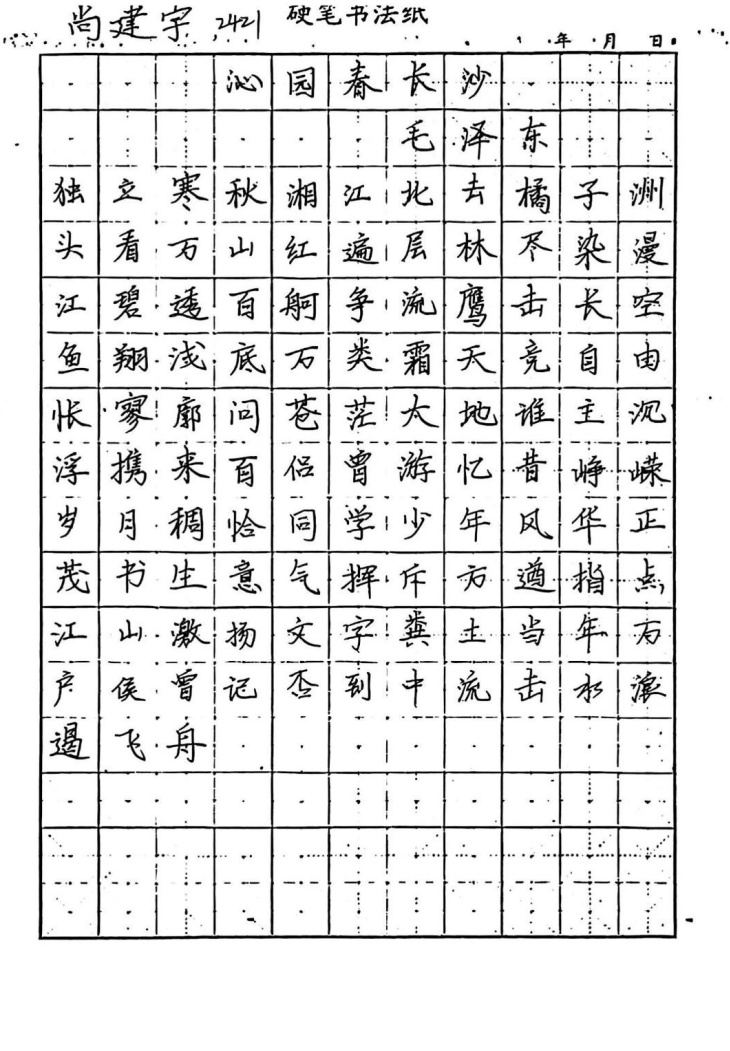 尚建宇 2421 硬笔书法纸
年 月 日
沁园春长沙
毛泽东
独立寒秋湘江北去橘子洲
头看万山红遍层林尽染漫
江碧透百舸争流鹰击长空
鱼翔浅底万类霜天竞自由
怅寥廓问苍茫大地谁主沉
浮携来百侣曾游忆昔峥嵘
岁月稠恰同学少年风华正
茂书生意气挥斥方遒指点
江山激扬文字粪土当年万
户侯曾记否到中流击水浪
遏飞舟